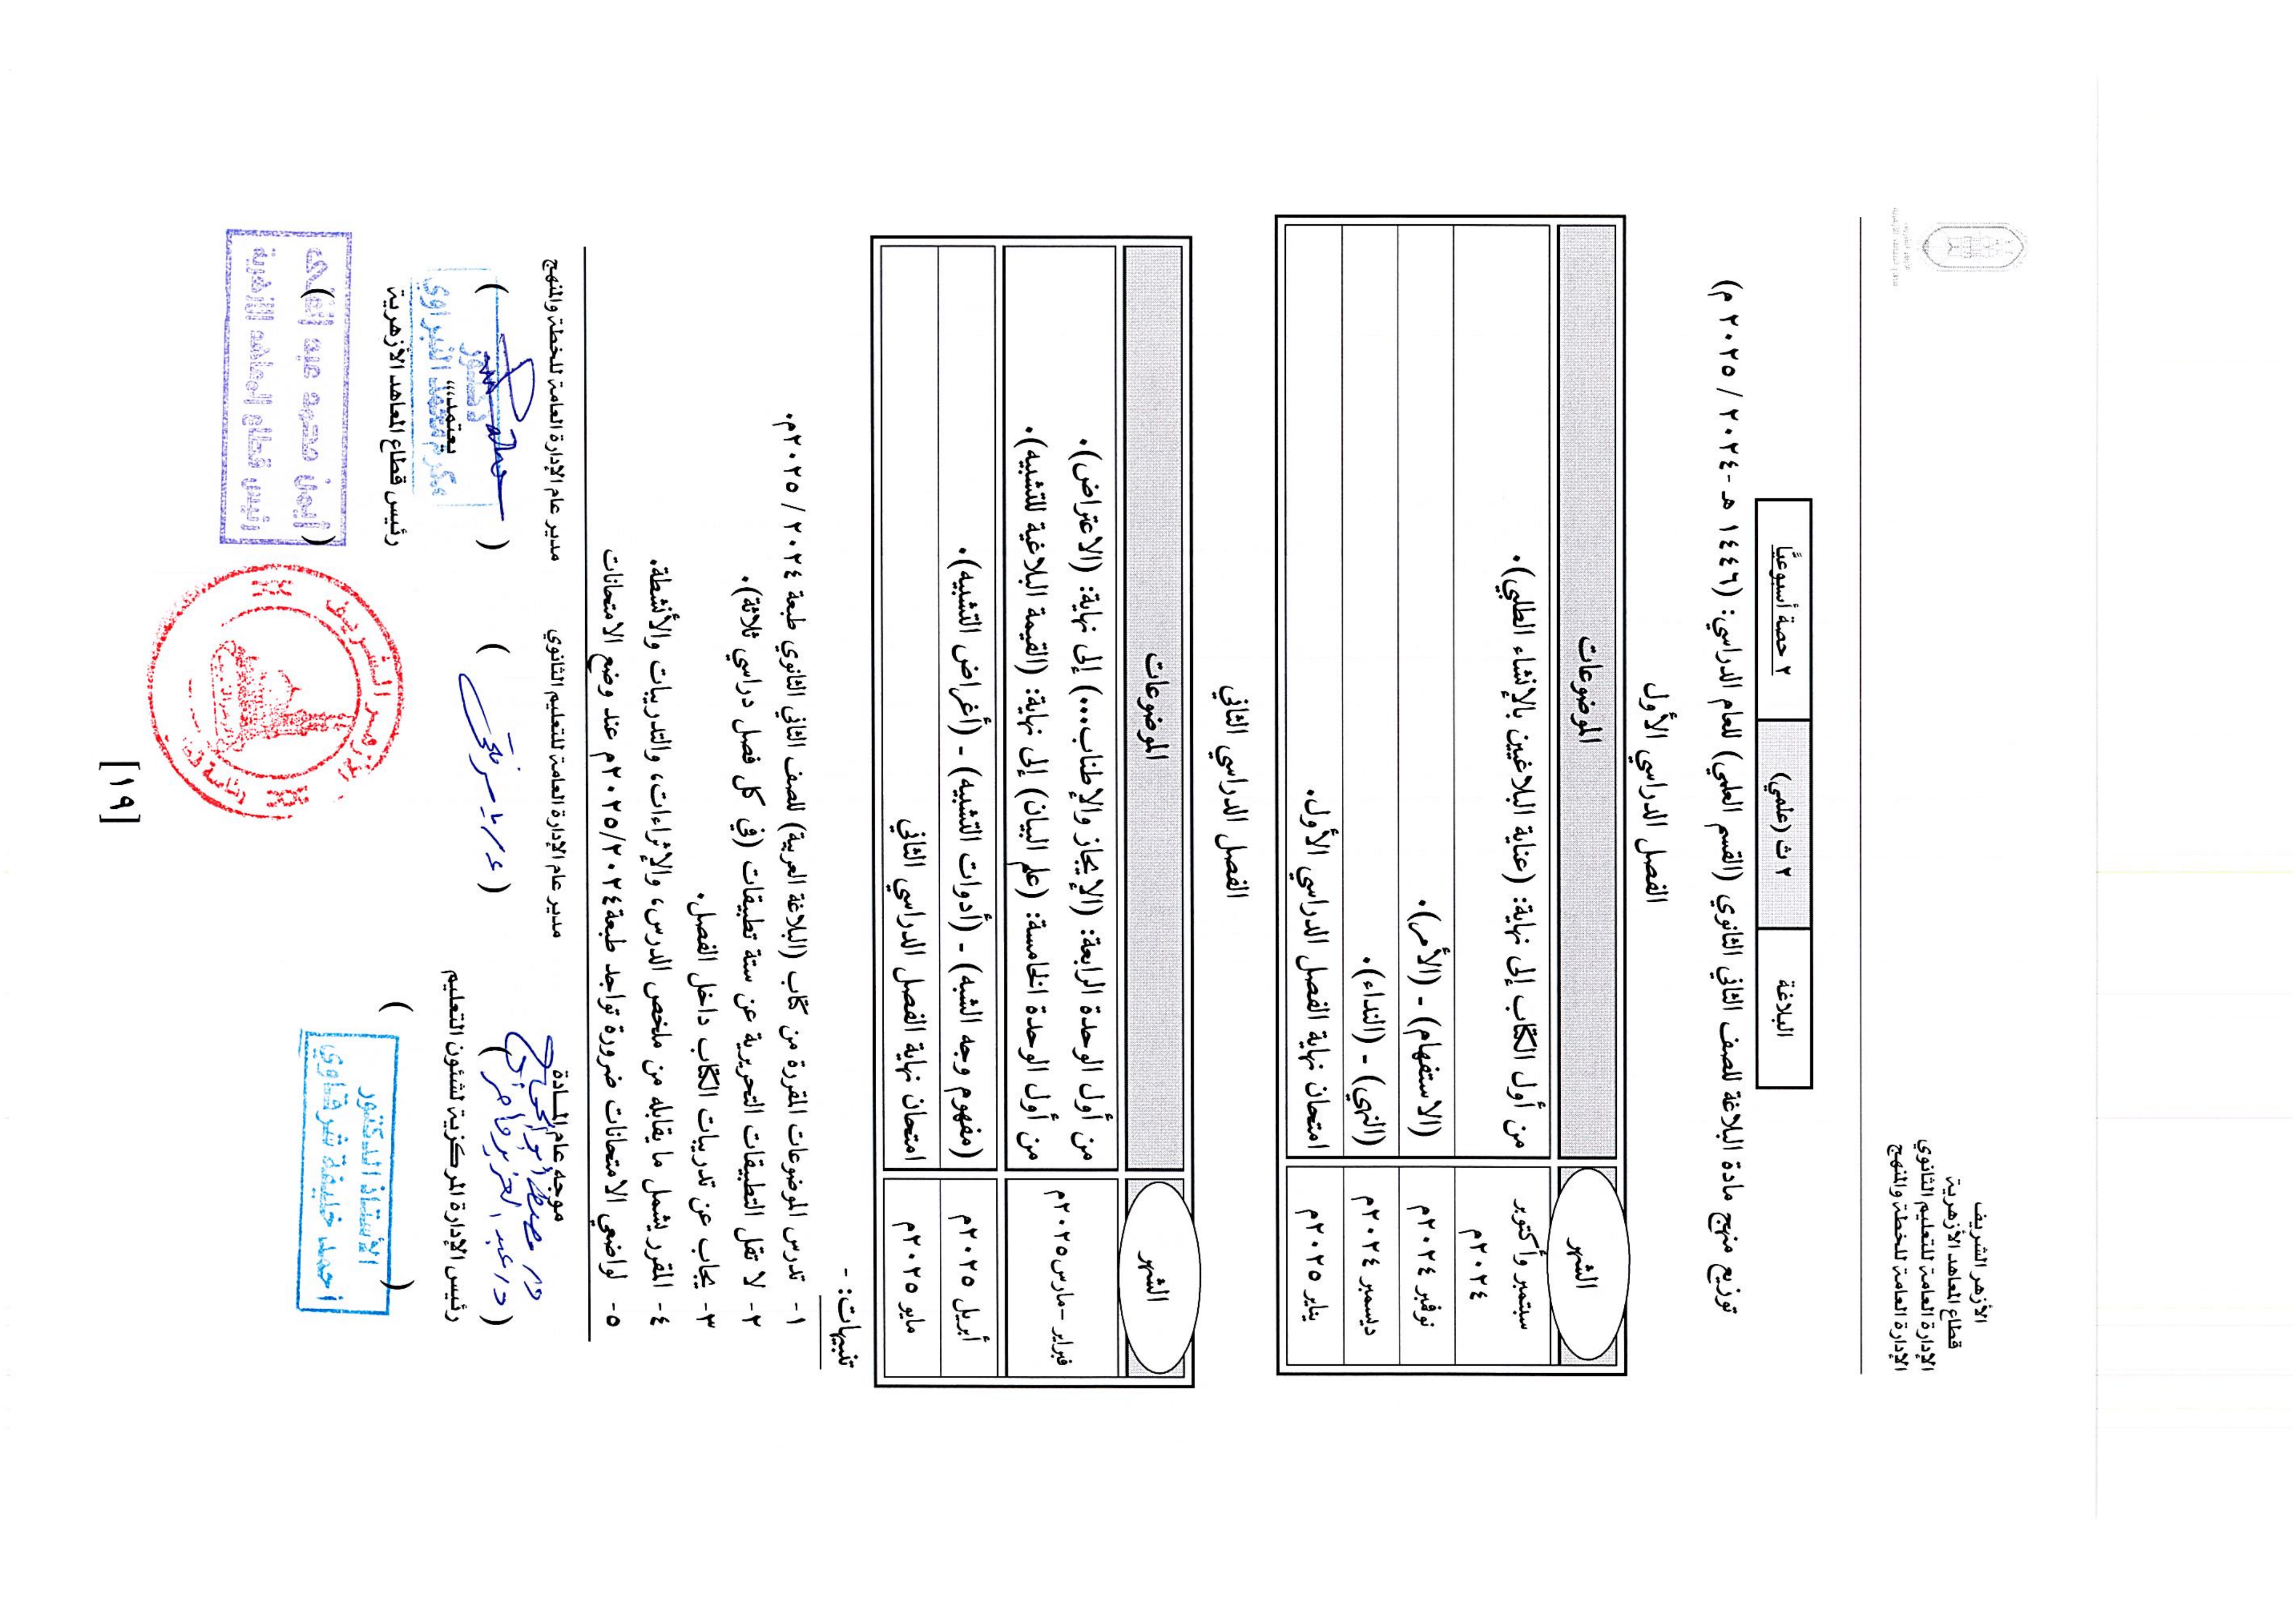 الأزهر الشريف
قطاع المعاهد الأزهرية
الإدارة العامة للتعليم الثانوي
الإدارة العامة للخطة والمنهج
البلاغة ٢ ث (علمي) ٢ حصة أسبوعيًا
توزيع منهج مادة البلاغة للصف الثاني الثانوي (القسم العلمي) للعام الدراسي: (١٤٤٦ هـ - ٢٠٢٤ / ٢٠٢٥ م)
الفصل الدراسي الأول
الشهر الموضوعات
سبتمبر وأكتوبر
٢٠٢٤م
من أول الكتاب إلى نهاية: (عناية البلاغيين بالإنشاء الطلبي).
نوفمبر ٢٠٢٤م (الاستفهام) - (الأمر).
ديسمبر ٢٠٢٤م (النهي) - (النداء).
يناير ٢٠٢٥م امتحان نهاية الفصل الدراسي الأول.
الفصل الدراسي الثاني
الشهر الموضوعات
فبراير - مارس٢٠٢٥م
من أول الوحدة الرابعة: (الإيجاز والإطناب...) إلى نهاية: (الاعتراض).
من أول الوحدة الخامسة: (علم البيان) إلى نهاية: (القيمة البلاغية للتشبيه).
أبريل ٢٠٢٥م (مفهوم وجه الشبه) - (أدوات التشبيه) - (أغراض التشبيه).
مايو ٢٠٢٥م امتحان نهاية الفصل الدراسي الثاني
تنبيهات: -
١- تدرس الموضوعات المقررة من كتاب (البلاغة العربية) للصف الثاني الثانوي طبعة ٢٠٢٤ / ٢٠٢٥م.
٢- لا تقل التطبيقات التحريرية عن ستة تطبيقات (في كل فصل دراسي ثلاثة).
٣- يجاب عن تدريبات الكتاب داخل الفصل.
٤- المقرر يشمل ما يقابله من ملخص الدرس، والإثراءات، والتدريبات والأنشطة.
٥- لواضعي الامتحانات ضرورة تواجد طبعة ٢٠٢٤/٢٠٢٥م عند وضع الامتحانات
موجه عام المادة مدير عام الإدارة العامة للتعليم الثانوي مدير عام الإدارة العامة للخطة والمنهج
دكتور
محمد النبراوي
رئيس الإدارة المركزية لشئون التعليم يعتمد،،
رئيس قطاع المعاهد الأزهرية
الأستاذ الدكتور
أحمد خليفة شرقاوي
أيمن محمد عبد الغني
رئيس قطاع المعاهد الأزهرية
[١٩]